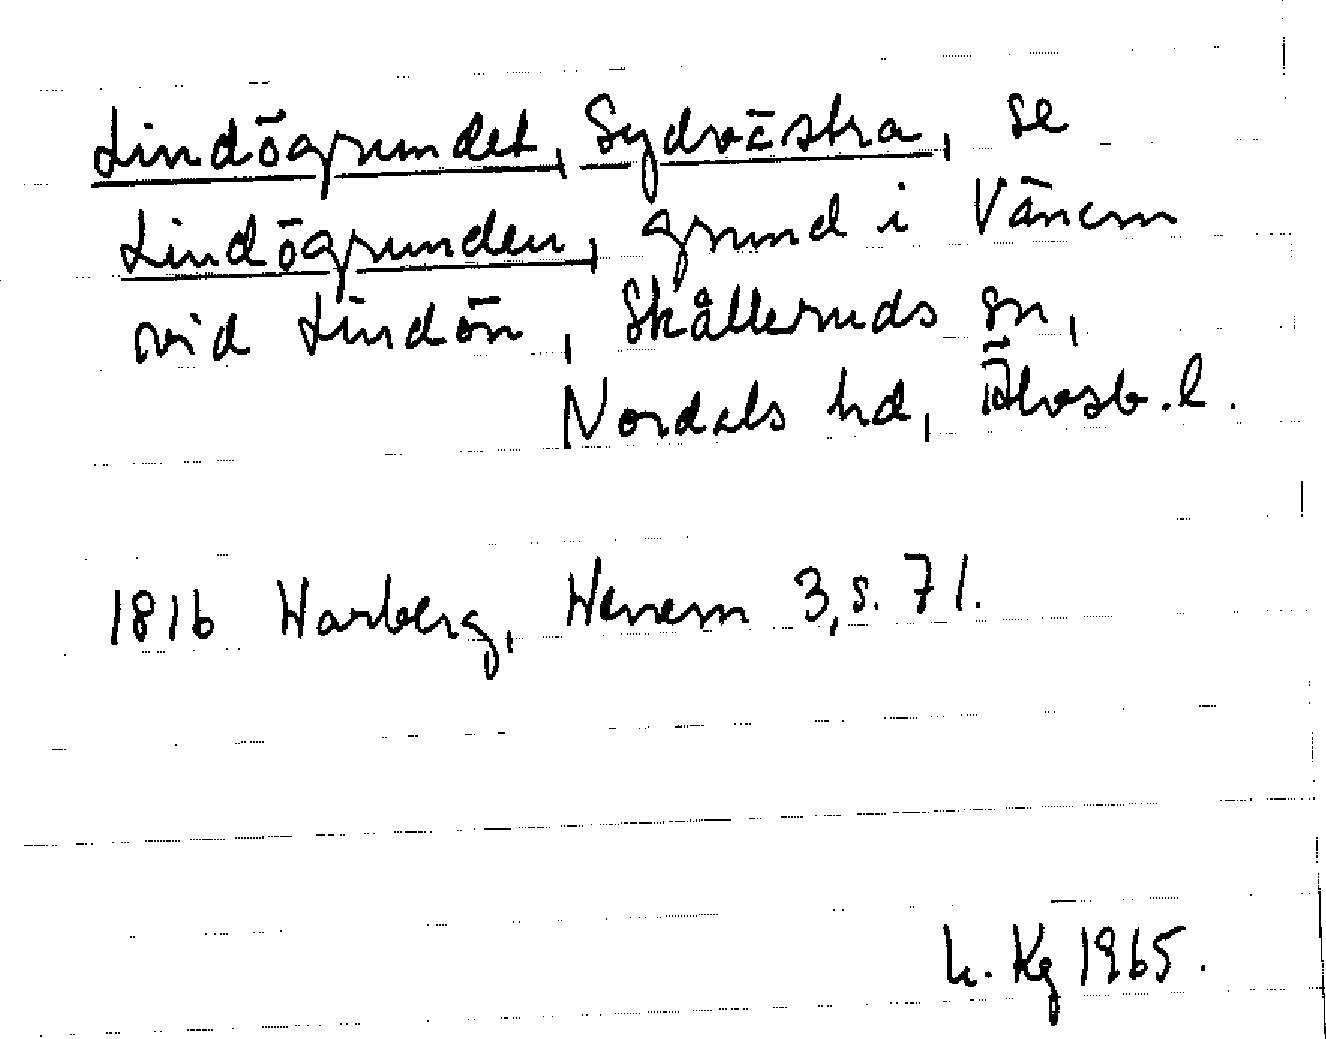 Lindögrundet, Sydvästra, se
Lindögrunden, grund i Vänern
vid Lindön, Skålleruds sn,
Nordals hd, Älvsb. l.
1816 Warberg, Wenern 3, s. 71.
h. Kg 1965.